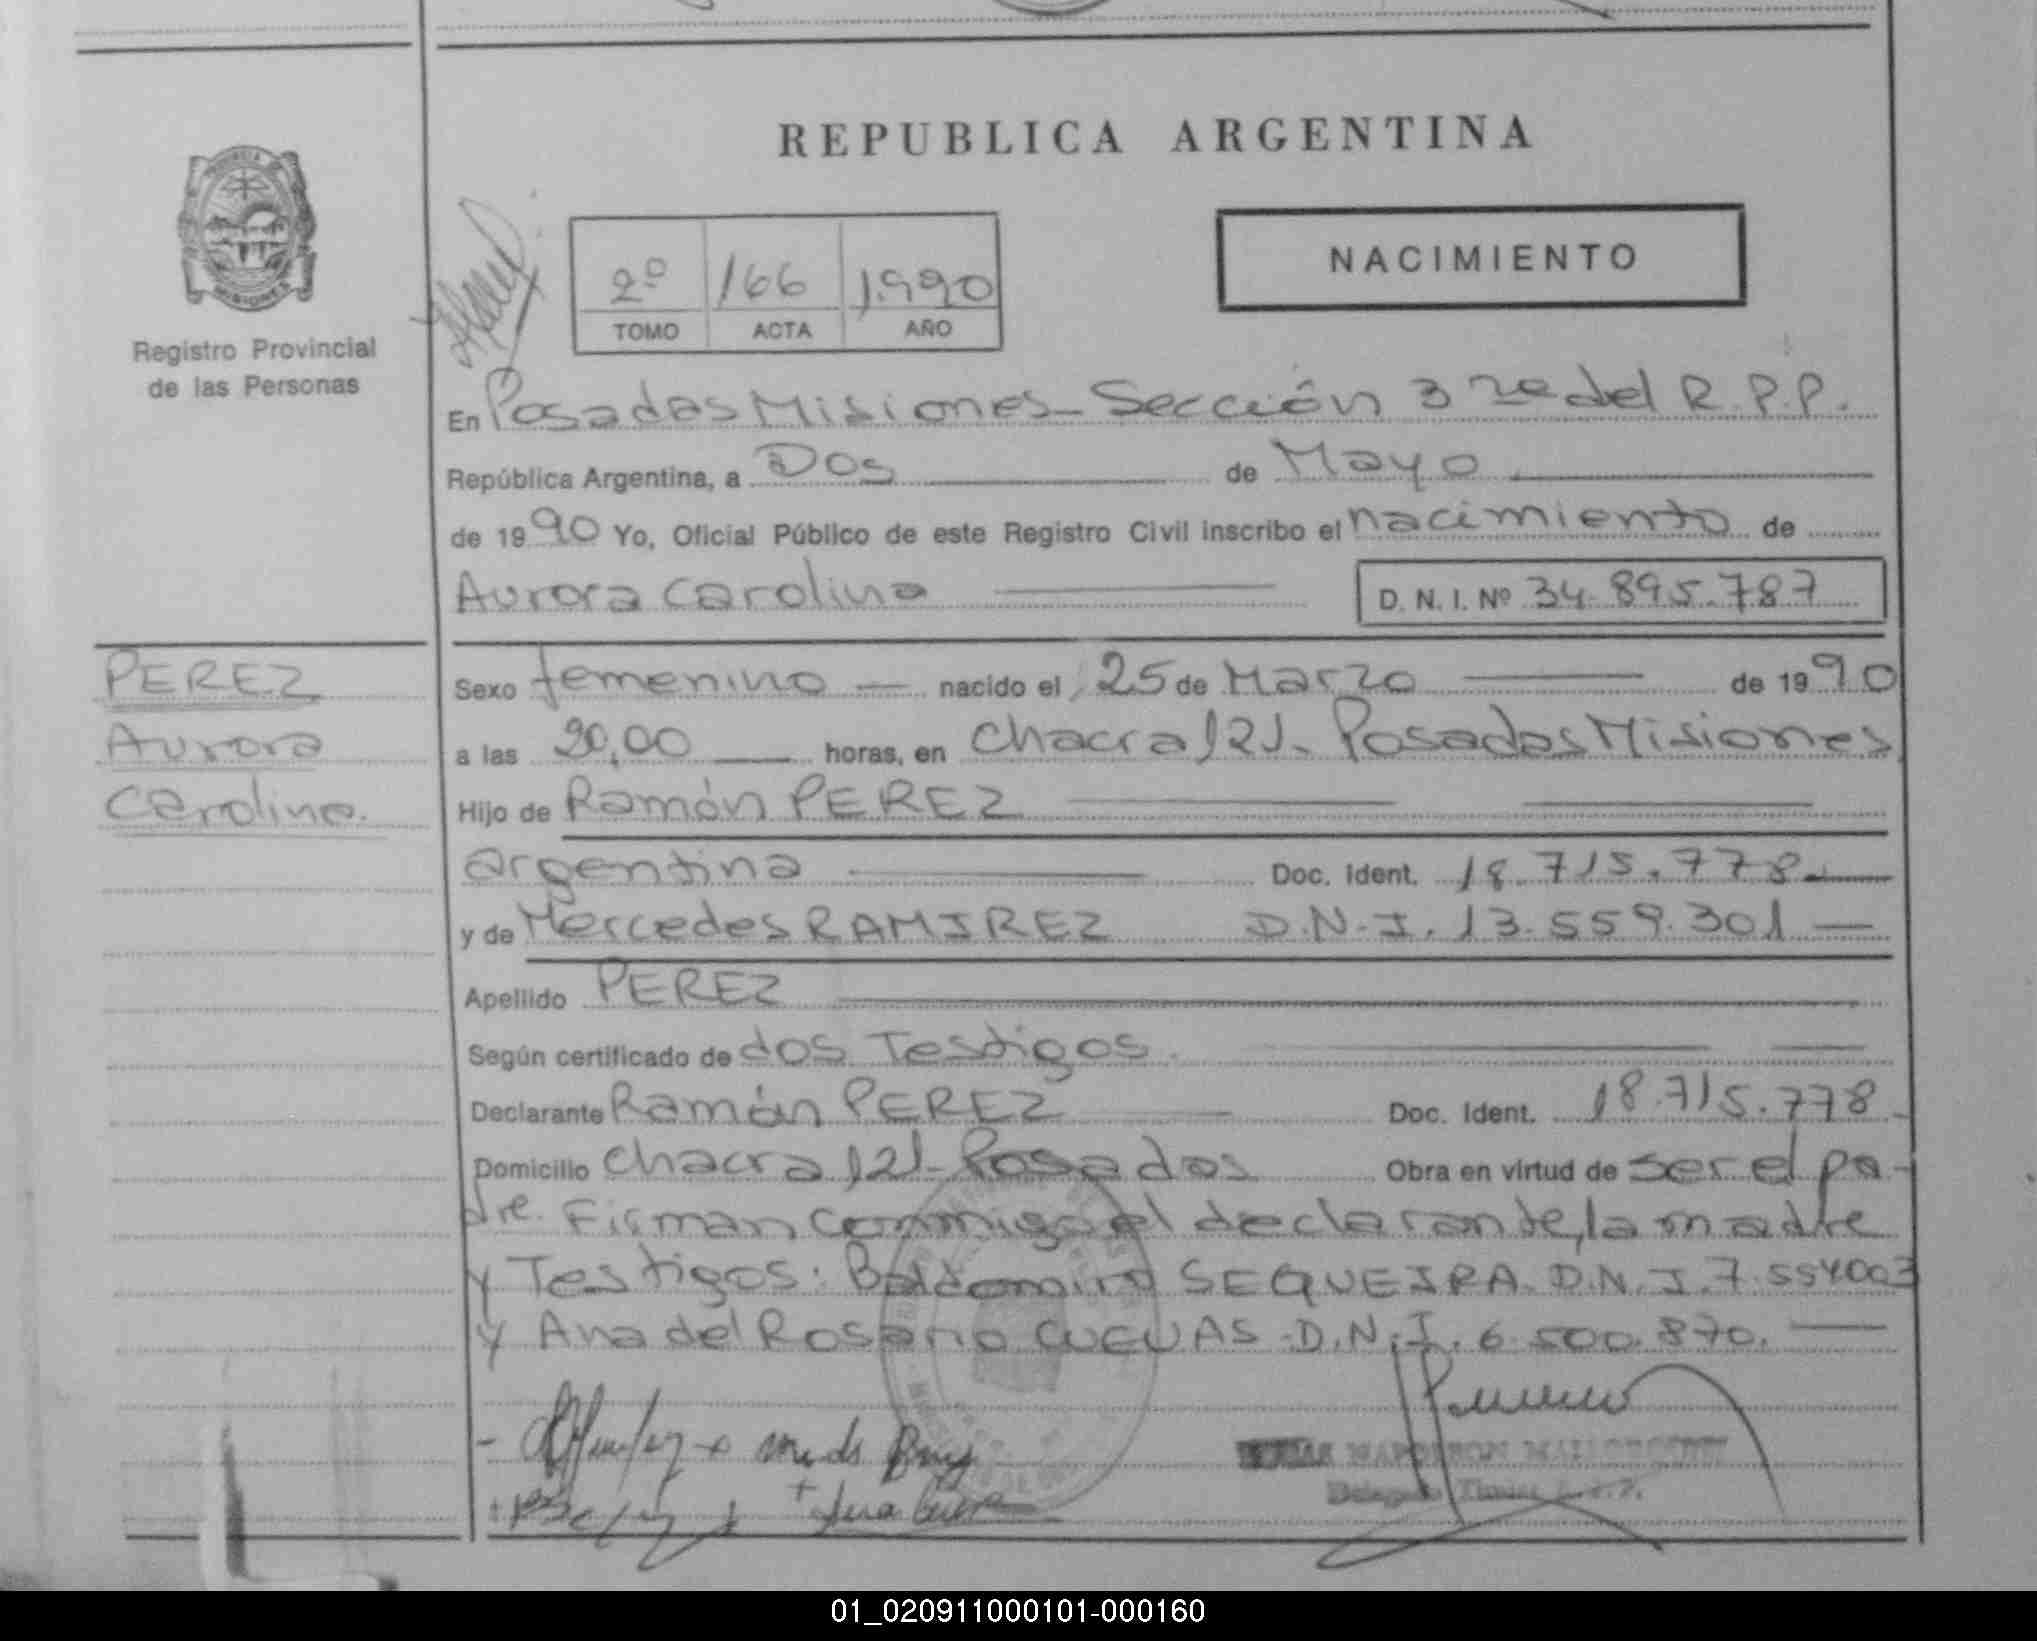 REPUBLICA ARGENTINA
NACIMIENTO
2º 166 1.990
TOMO ACTA AÑO
Registro Provincial
de las Personas
En Posadas Misiones - Sección 3 ra del R.P.P.
República Argentina, a Dos de Mayo
de 1990 Yo, Oficial Público de este Registro Civil inscribo el nacimiento de
Aurora Carolina D. N. I. Nº 34.895.787
PEREZ
Aurora
Carolina.
Sexo femenino nacido el 25 de Marzo de 1990
a las 20,00 horas, en Chacra 121 - Posadas Misiones
Hijo de Ramón PEREZ
argentina Doc. Ident. 18.715.778
y de Mercedes RAMIREZ D.N.I. 13.559.301
Apellido PEREZ
Según certificado de dos Testigos.
Declarante Ramón PEREZ Doc. Ident. 18.715.778
Domicilio Chacra 121 - Posadas Obra en virtud de ser el pa-
dre. Firman conmigo el declarante, la madre
y Testigos: Baldomiro SEQUEIRA. D.N.I. 7.554003
y Ana del Rosario CUEVAS - D.N.I. 6.500.870.
NAPOLEON
01_020911000101-000160